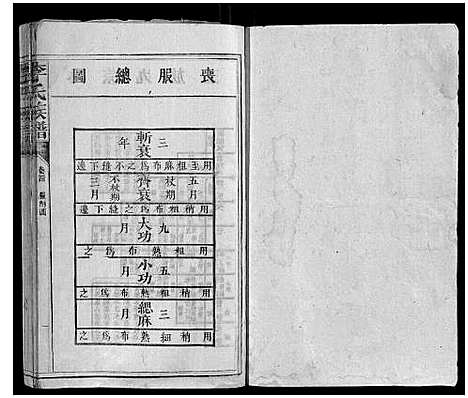 喪服總圖
斬衰三年
用至粗麻布為之不縫下邊
齊衰五月杖期不杖期三月
用稍粗布為之縫下邊
大功九月
用粗熟布為之
小功五月
用稍粗熟布為之
緦麻三月
用稍細熟布為之
李氏族譜